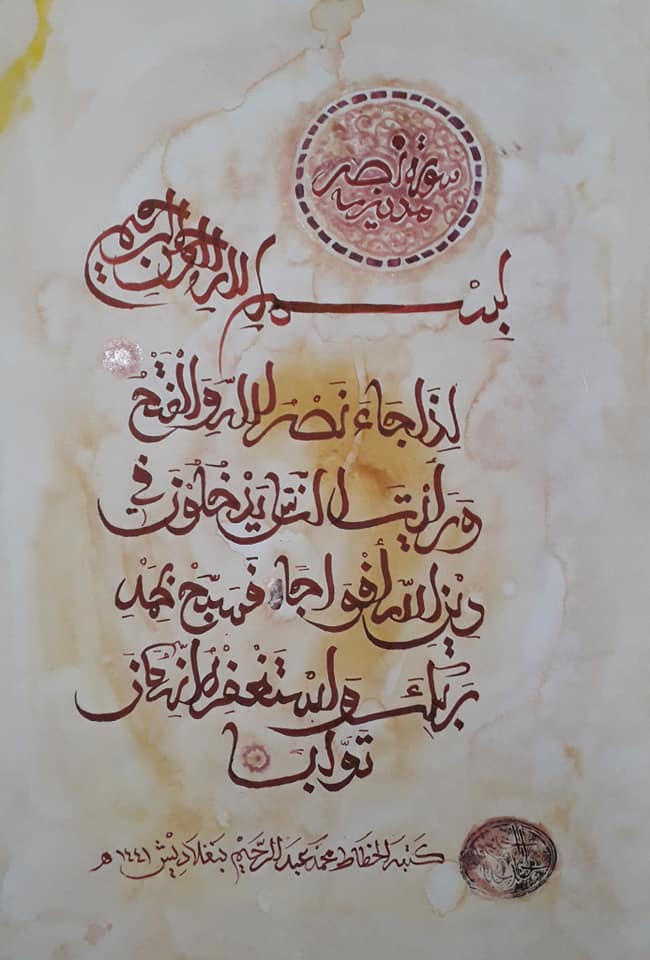 سورة نصر
مدنية
بِسْمِ اللہِ الرحمن الرحيم
إِذَا جَاءَ نَصْرُ اللهِ وَالْفَتْحُ
وَرَأَيْتَ النَّاسَ يَدْخُلُوْنَ فِي
دِيْنِ اللهِ أَفْوَاجًا فَسَبِّحْ بِحَمْدِ
رَبِّكَ وَاسْتَغْفِرْهُ إِنَّهُ كَانَ
تَوَّابًا
كَتَبَهُ الخَطَّاط محمَّد عَبد الرَّحِيْم بَنغلاديْش ١٤٤١ هـ